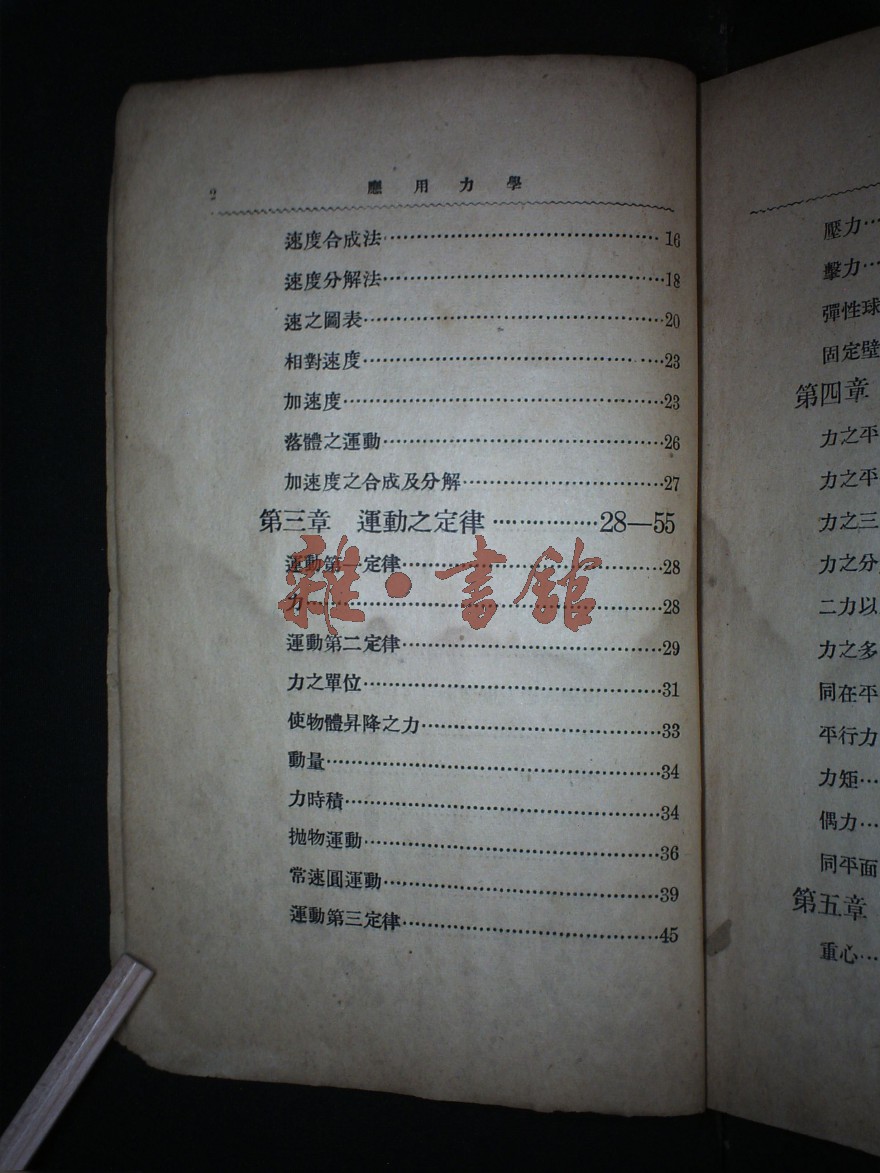 2
應用力學
速度合成法……16
速度分解法……18
速之圖表……20
相對速度……23
加速度……23
落體之運動……26
加速度之合成及分解……27
第三章 運動之定律……28—55
運動第一定律……28
力……28
運動第二定律……29
力之單位……31
使物體昇降之力……33
動量……34
力時積……34
拋物運動……36
常速圓運動……39
運動第三定律……45
雜·書館
壓力…
擊力…
彈性球
固定壁
第四章
力之平
力之平
力之三
力之分
二力以
力之多
同在平
平行力
力矩…
偶力…
同平面
第五章
重心…